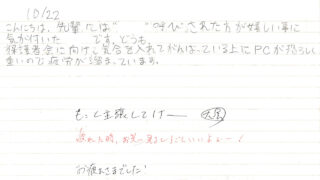 10/22
こんにちは、先輩には“　　”呼びされた方が嬉しい事に
気が付いた　　です、どうも。
保護者会に向けて気合を入れてがんばっている上にPCが恐ろしく
重いので疲労が溜まっています。
もっと主張してけ——
疲れた時、お笑い見るとすごくいいよー！
お疲れさまでした